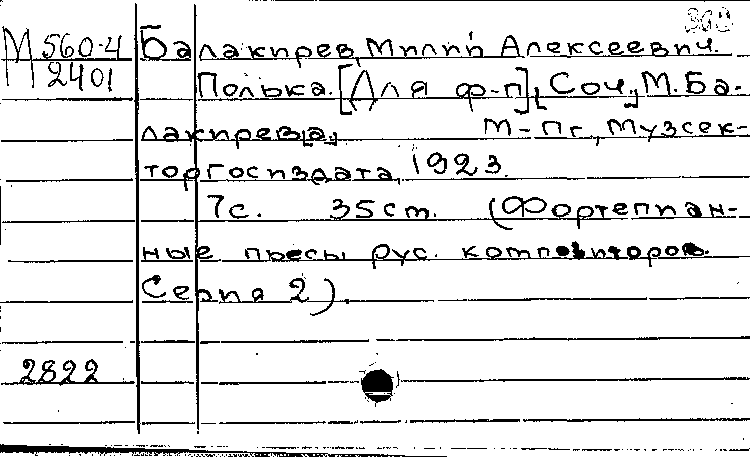 М 560-4
2401
Балакирев, Милий Алексеевич.
Полька. [Для ф-п], [Соч.] М. Ба-
лакирев[а]. М-Пг., Музсек-
тор Госиздата, 1923.
7с. 35cm. (Фортепиан-
ные пьесы рус. композиторов.
Серия 2).
2822